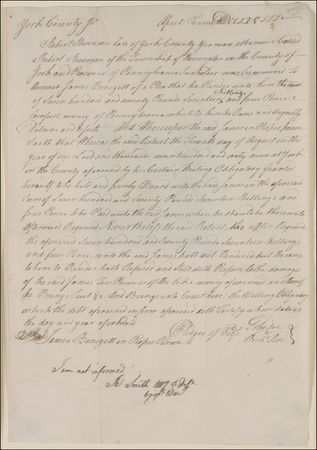 York County Ss. April Term
Robert Stevenson late of York County Yeoman otherwise Called
Robert Stevenson of the Township of in the County of
York and Province of Pennsylvania was Summoned to
Answer James Benezett of a Plea that he Render unto him the sum
of Seven hundred and twenty Pounds Seventeen Shillings and four Pence
Lawfull money of Pennsylvania which to him he Owes and unjustly
Detains and And Whereupon the said James in Proper person
Saith that Whereas the said Robert the day of August in the
year of our Lord one thousand seven hundred and sixty at York
in the County aforesaid by his Certain Writing Obligatory
himself to be held and firmly Bound unto the said James in the aforesaid
Sum of Seven hundred and twenty Pounds Seventeen Shillings and
four Pence to be Paid unto the said James when he should be thereunto
afterward Required Nevertheless the said Robert, tho often Required
the aforesaid Seven hundred and twenty Pounds Seventeen shillings
and four Pence unto the said James hath not Rendered but the same
to him to Render hath Refused and Still doth Refuse to the damage
of the said James Ten Pounds of the like money
he Brings Suit &c And Brings into Court here the Writing Obligatory
which the debt aforesaid in form aforesaid doth Testify whose date is
the day and year aforesaid
James Benezett in Proper Person Pledges of John Doe
Richd Roe
I am not informed
Js Smith Atty